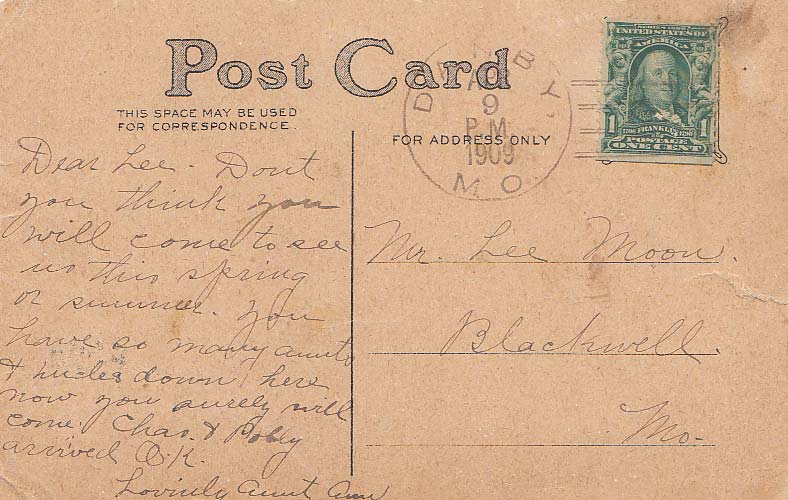 Post Card
THIS SPACE MAY BE USED
FOR CORRESPONDENCE.
FOR ADDRESS ONLY
DENBY,
9
P.M.
1909
MO.
SERIES 1902
UNITED STATES OF
AMERICA
1 FRANKLIN 1
POSTAGE
ONE CENT
Dear Lee. Dont
you think you
will come to see
us this spring
or summer. you
have so many aunts
& uncles down here
now you surely will
come. Chas. &
arrived O.K.
Lovinly aunt Ann
Mr. Lee Moon.
Blackwell.
Mo.